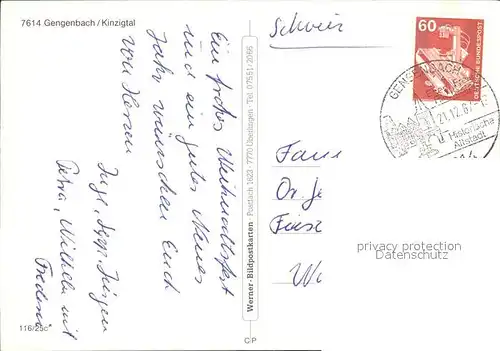 7614 Gengenbach/Kinzigtal
Ein frohes Weihnachtsfest
und ein gutes Neues
Jahr wünschen Euch
von Herzen
Inge, Jürgen
Petra, Wilhelm mit
Frederic
116/25c
Werner-Bildpostkarten · Postfach 1623 · 7770 Überlingen · Tel. 07551/2066
C/P
Schweiz
60
DEUTSCHE BUNDESPOST
GENGENBACH
21.12.87
Historische
Altstadt
Fam
Dr. Je
privacy protection
Datenschutz